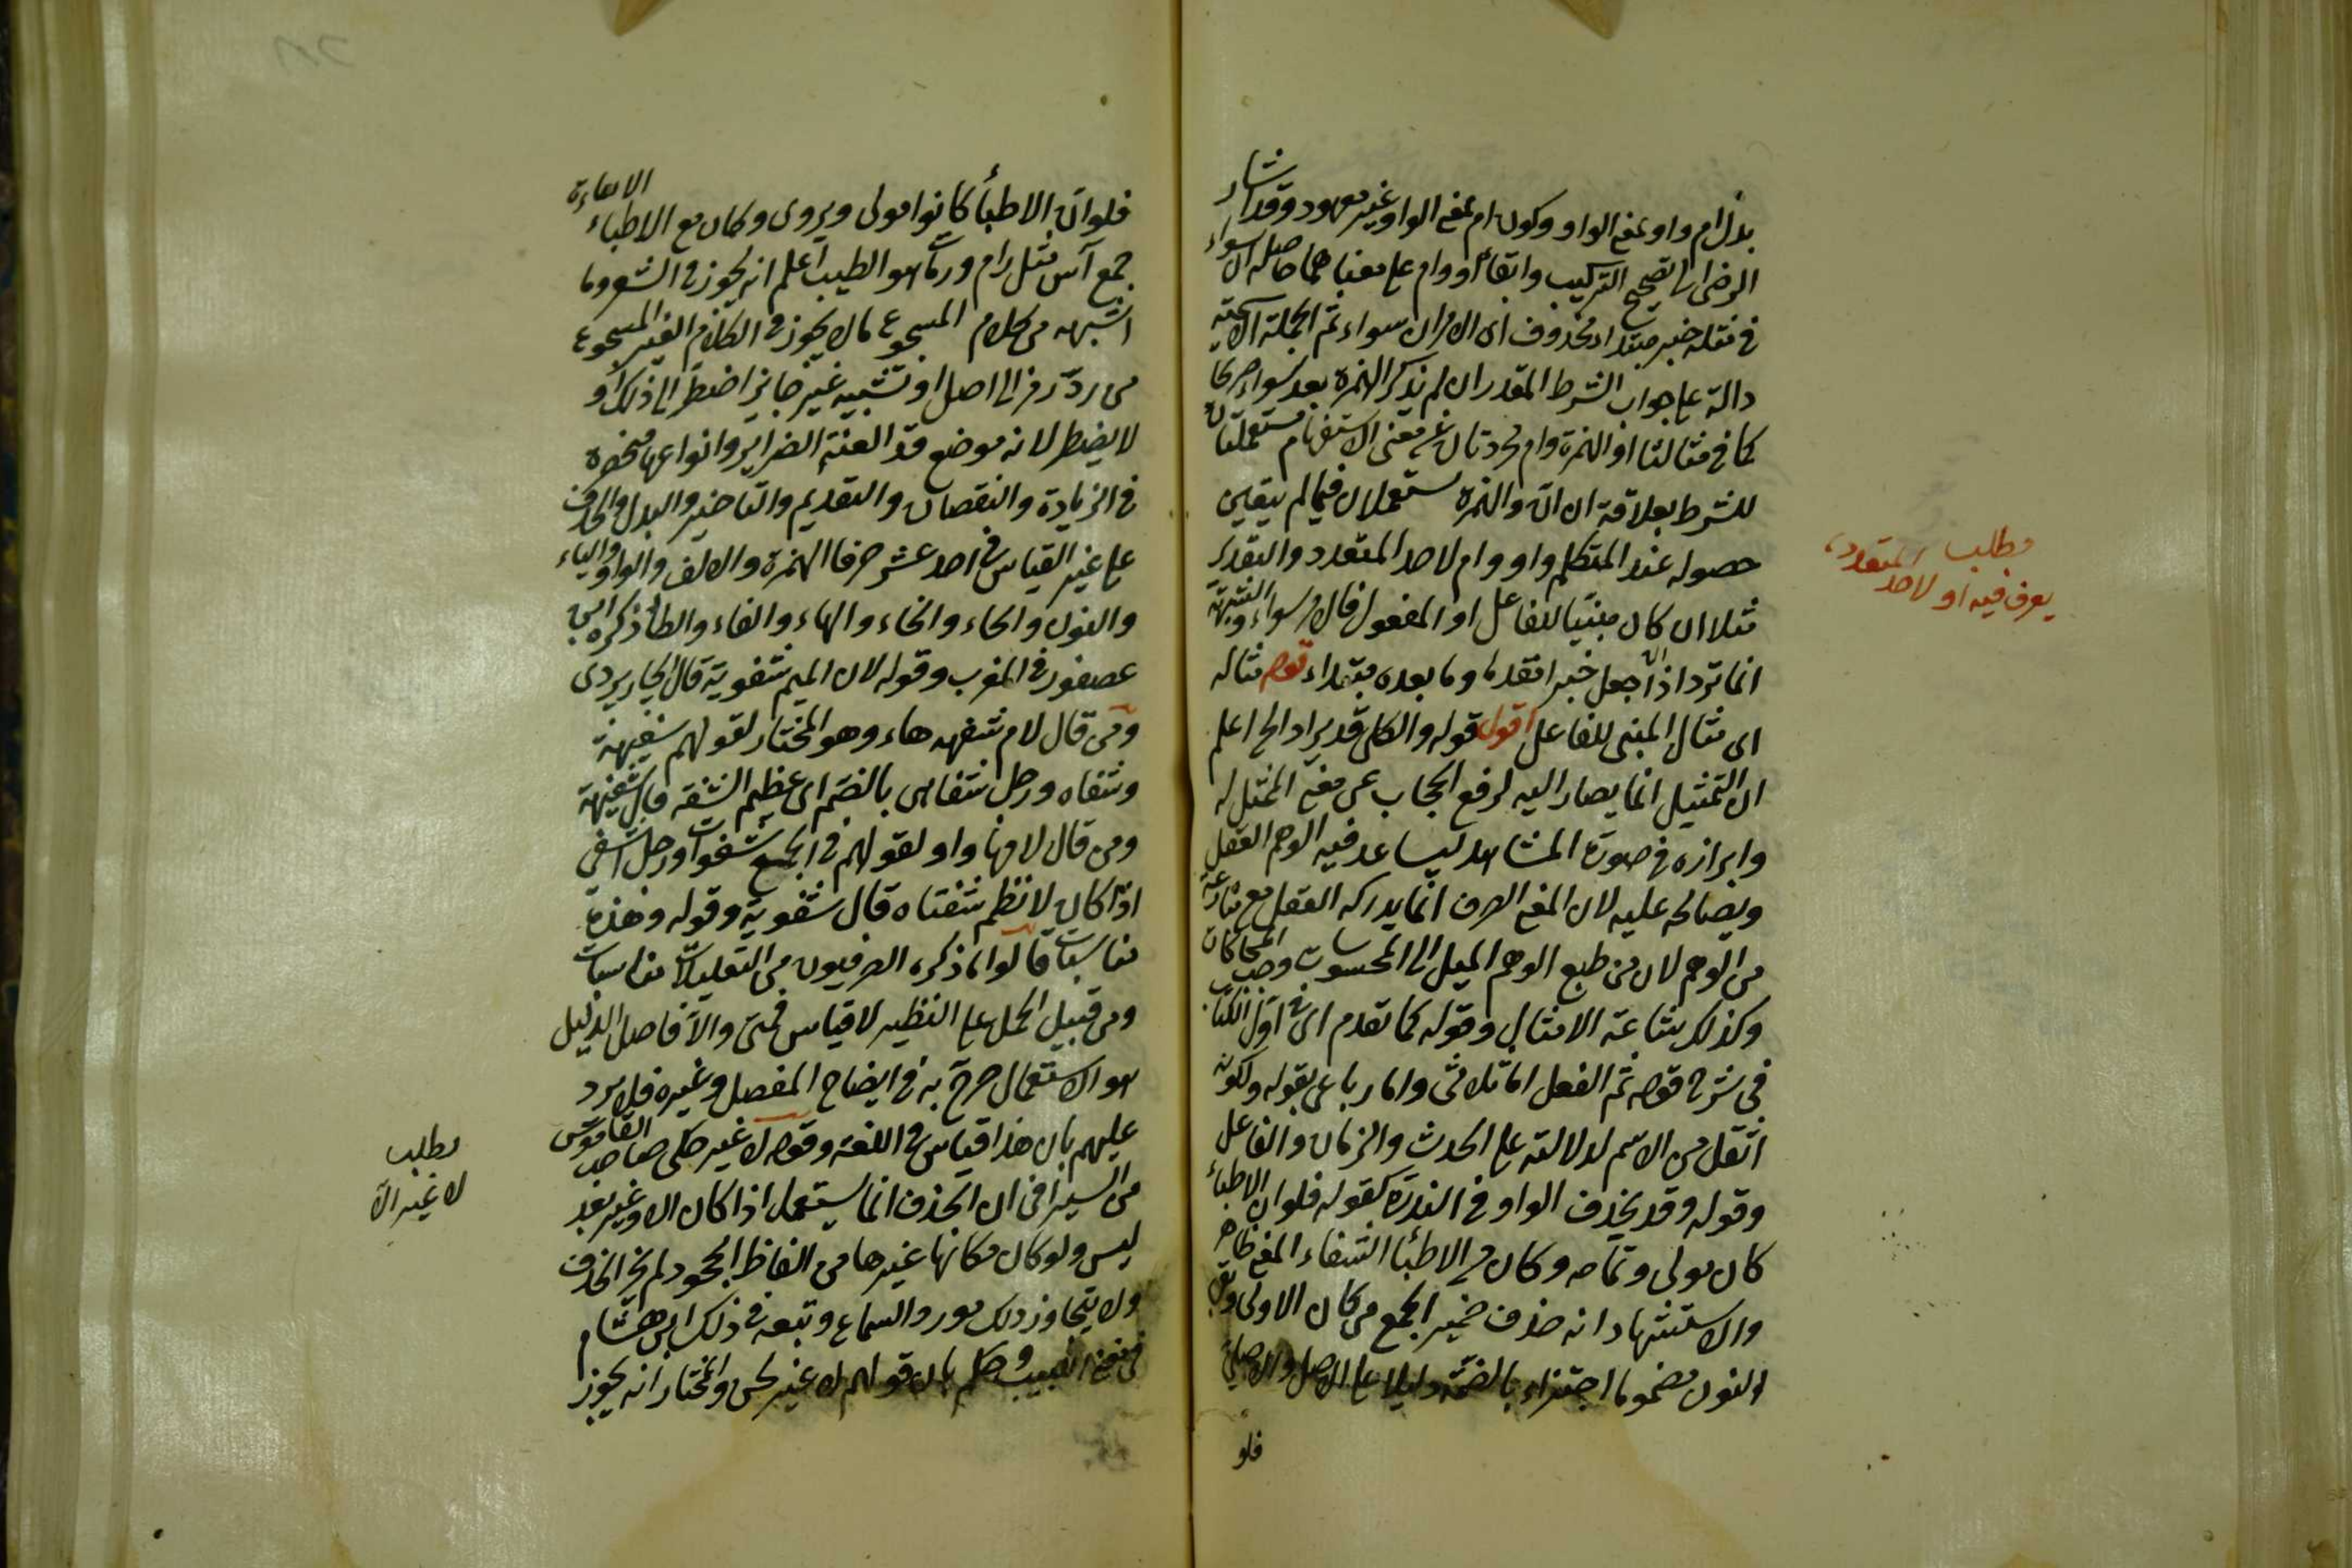 بدل ام واو بمعنى الواو وكون ام بمعنى الواو غير معهود وقد اشار
الرضى الى تصحيح التركيب وابقاء او وام على معناهما حاصله ان سواء
في مثله خبر مبتدا محذوف اى الامران سواء ثم الجملة الاسمية
دالة على جواب الشرط المقدر ان لم يذكر الهمزة بعد سواء صريحا
كما في مثالنا او الهمزة وام مجردتان عن معنى الاستفهام مستعملتان
للشرط بعلاقة ان ان والهمزة يستعملان فيما لم يتيقن
حصوله عند المتكلم واو وام لاحد المتعدد والتقدير
مثلا ان كان مبنيا للفاعل او المفعول فالامر سواء والشبهة
انما ترد اذا جعل خبرا مقدما وما بعده مبتداء قوله مثاله
اى مثال المبنى للفاعل اقول قوله والكلى قد يراد الخ اعلم
ان التمثيل انما يصار اليه لرفع الحجاب عن معنى الممثل له
وابرازه في صورة المشاهد ليساعد فيه الوهم العقل
ويصالحه عليه لان المعنى الصرف انما يدركه العقل مع منازعة
من الوهم لان من طبع الوهم الميل الى المحسوسات وحب المحاكات
وكذلك شاعة الامثال وقوله كما تقدم اى في اول الكتاب
في شرح قوله ثم الفعل اما ثلاثى واما رباعى بقوله ولكونه
اثقل من الاسم لدلالته على الحدث والزمان والفاعل
وقوله وقد يحذف الواو في الندرة كقوله فلو ان الاطباء
كان حولى وتمامه وكان مع الاطبا الشفاء المعنى ظاهر
والاستشهاد انه حذف ضمير الجمع من كان الاولى وبقى
النون مضموما اجتزاء بالضمة دليلا على الاصل والاصل
فلو
مطلب
يعرف فيه او لاحد المتعدد
فلو ان الاطبأ كانوا حولى ويروى وكان مع الاطباء الاساءة
جمع آس مثل رام ورماة هو الطبيب اعلم انه يجوز في الشعر وما
اشبهه من كلام المسجوع ما لا يجوز في الكلام الغير المسجوع
من رد فرع الى اصل او تشبيه غير جائز اضطر الى ذلك او
لا يضطر لانه موضع قد الفته الضراير وانواعها منحصرة
في الزيادة والنقصان والتقديم والتاخير والبدل والحذف
على غير القياس في احد عشر حرفا الهمزة والالف والواو والياء
والنون والحاء والخاء والهاء والفاء والطاء ذكره ابن
عصفور في المقرب وقوله لان الميم شفوية قال الجاربردى
ومن قال لام شفه هاء وهو المختار لقولهم شفيهة
وشفاه ورجل شفاهى بالضم اى عظيم الشفة قال شفهية
ومن قال لامها واو لقولهم في الجمع شفوات ورجل اشفى
اذا كان لا تنضم شفتاه قال شفوية وقوله وهذه
مناسبات قالوا ما ذكره الصرفيون من التعليلات مناسبات
ومن قبيل الحمل على النظير لا قياس فمتى والا فاصل الدليل
هو الاستعمال صرح به في ايضاح المفصل وغيره فلا يرد
عليهم بان هذا قياس في اللغة وقوله لا غير حكى صاحب القاموس
من السيرافى ان الحذف انما يستعمل اذا كان الا وغير بعد
ليس ولو كان مكانها غيرها من الفاظ الجحود لم يجز الحذف
ولا يتجاوز ذلك مورد السماع وتبعه في ذلك ابن هشام
في مغنى اللبيب وحكم بان قولهم لا غير لحن والمختار انه يجوز
مطلب
لا غير الا